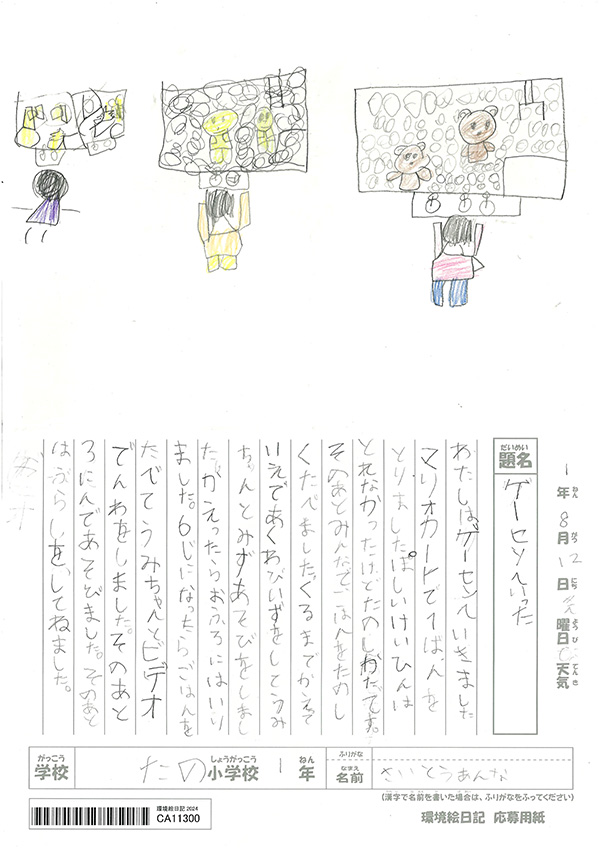 1年8月12日 曜日 天気
ねん がつ にち ようび てんき
だいめい
題名
ゲーセンへいった
わたしはゲーセンへいきました
マリオカートで1ばんを
とりましたほしいけいひんは
とれなかったけどたのしかたです。
そのあとみんなでごはんをたのし
くたべました。くるまでかえて
いえであくわびいずをしてうみ
ちゃんとみずあそびをしまし
た。かえったらおふろにはいり
ました。6じになったらごはんを
たべてうみちゃんとビデオ
でんわをしました。そのあと
ろにんであそびました。そのあと
はぶらしをしてねました。
がっこう
学校
たの
しょうがっこう
小学校
1
ねん
年
ふりがな
なまえ
名前
さいとうあんな
(漢字で名前を書いた場合は、ふりがなをふってください)
環境絵日記2024
CA11300
環境絵日記 応募用紙